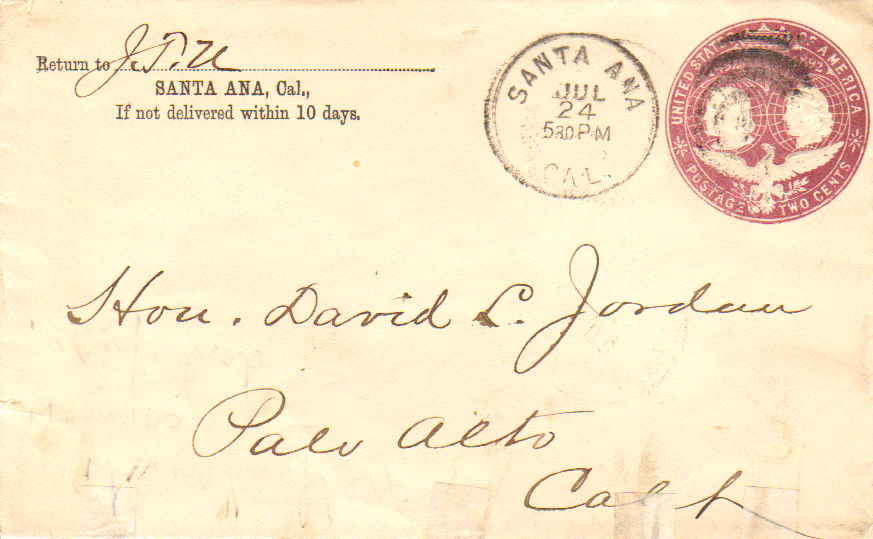 Return to J. P. U
SANTA ANA, Cal.,
If not delivered within 10 days.
SANTA ANA
JUL
24
530 PM
CAL.
UNITED STATES OF AMERICA
POSTAGE TWO CENTS
Hon. David L. Jordan
Palo Alto
Cal